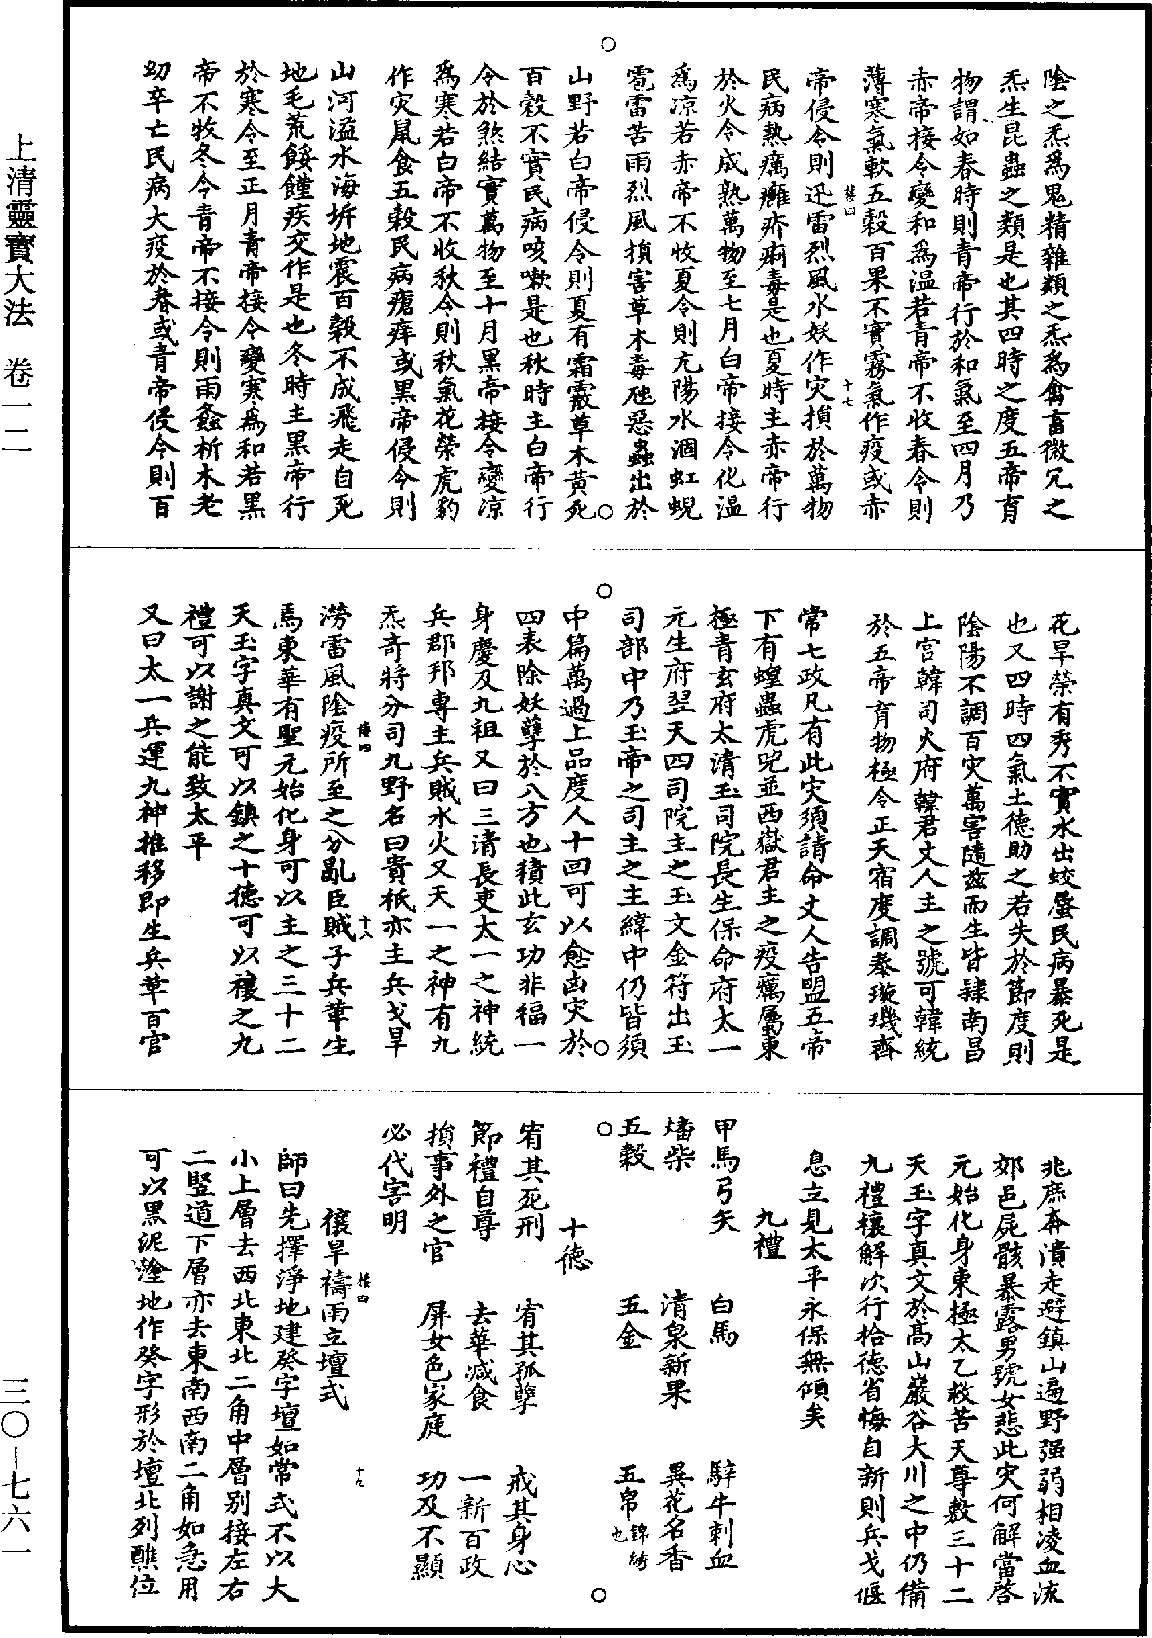 上清靈寶大法　卷一二
三〇—七六一
陰之炁爲鬼精雜類之炁爲禽畜微冗之
炁生昆蟲之類是也其四時之度五帝育
物謂如春時則青帝行於和氣至四月乃
赤帝接令變和爲温若青帝不收春令則
薄寒氣軟五穀百果不實霧氣作疫或赤
帝侵令則迅雷烈風水妖作灾損於萬物
民病熱癘癰疥痢毒是也夏時主赤帝行
於火令成熟萬物至七月白帝接令化温
爲凉若赤帝不收夏令則亢陽水涸虹蜺
雹雷苦雨烈風損害草木毒虺惡蟲出於
山野若白帝侵令則夏有霜霰草木黄死
百穀不實民病咳嗽是也秋時主白帝行
令於煞結實萬物至十月黑帝接令變凉
爲寒若白帝不收秋令則秋氣花榮虎豹
作灾鼠食五穀民病瘡痒或黑帝侵令則
山河溢水海坼地震百穀不成飛走自死
地毛荒餒饉疾交作是也冬時主黑帝行
於寒令至正月青帝接令變寒爲和若黑
帝不收冬令青帝不接令則雨螽析木老
幼卒亡民病大疫於春或青帝侵令則百
花早榮有秀不實水出蛟蜃民病暴死是
也又四時四氣土德助之若失於節度則
陰陽不調百灾萬害隨兹而生皆隸南昌
上宫韓司火府韓君丈人主之號可韓統
於五帝育物極令正天宿度調泰璇璣齊
常七政凡有此灾須請命丈人告盟五帝
下有蝗蟲虎兕並西嶽君主之疫癘屬東
極青玄府太清玉司院長生保命府太一
元生府翌天四司院主之玉文金符出玉
司部中乃玉帝之司主之主緯中仍皆須
中篇萬過上品度人十回可以愈凾灾於
四表除妖孽於八方也積此玄功非福一
身慶及九祖又曰三清長吏太一之神統
兵郡邦專主兵賊水火又天一之神有九
炁奇將分司九野名曰貴祇亦主兵戈旱
澇雷風陰疫所至之分亂臣賊子兵革生
焉東華有聖元始化身可以主之三十二
天玉字真文可以鎮之十德可以禳之九
禮可以謝之能致太平
又曰太一兵運九神推移即生兵革百官
兆庶奔潰走避鎮山遍野强弱相凌血流
郊邑屍骸暴露男號女悲此灾何解當啓
元始化身東極太乙救苦天尊敷三十二
天玉字真文於髙山巖谷大川之中仍備
九禮禳解次行拾德省悔自新則兵戈偃
息立見太平永保無傾矣
九禮
甲馬弓矢　白馬　騂牛刺血
燔柴　清泉新果　異花名香
五穀　五金　五帛錦綺也
十德
宥其死刑　宥其孤孽　戒其身心
節禮自尊　去華減食　一新百政
損事外之官　屏女色家庭　功及不顯
必代害明
禳旱禱雨立壇式
師曰先擇淨地建癸字壇如常式不以大
小上層去西北東北二角中層別接左右
二竪道下層亦去東南西南二角如急用
可以黑泥塗地作癸字形於壇北列醮位